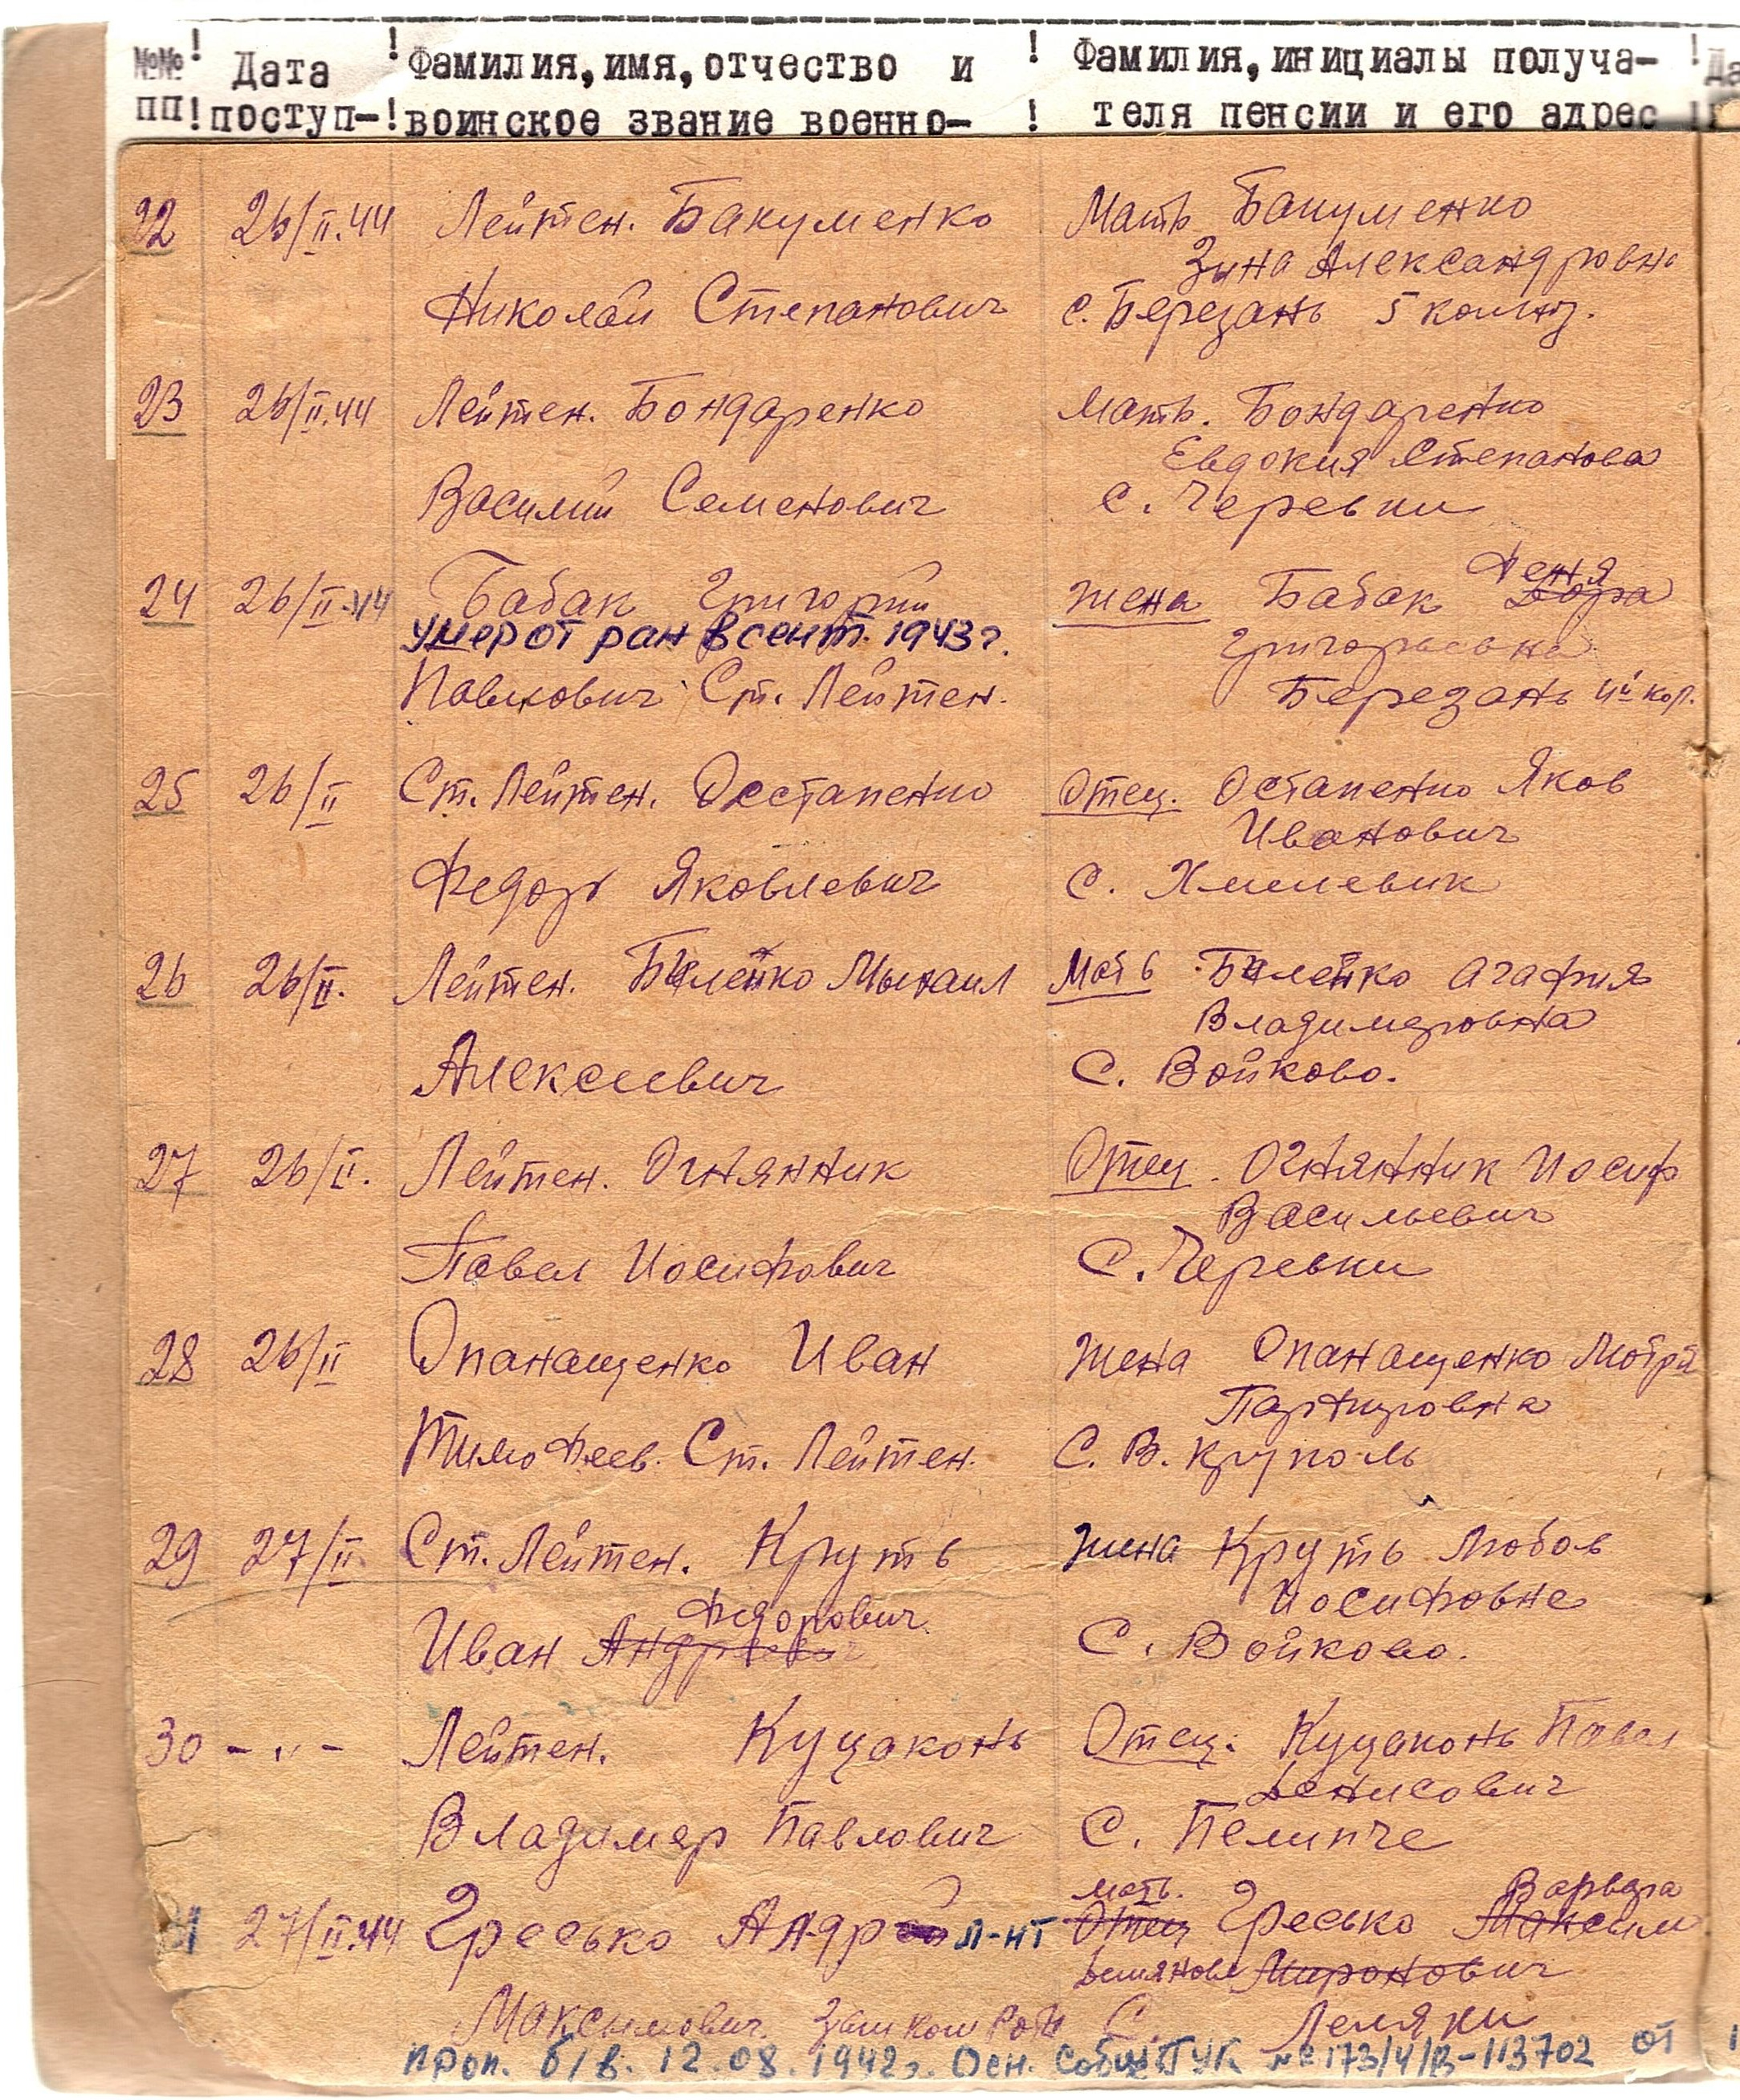 №№ ! Дата ! Фамилия, имя, отчество и ! Фамилия, инициалы получа- !
пп ! поступ- ! воинское звание военно- ! теля пенсии и его адрес !
22 26/II.44 Лейтен. Бакуменко Мать Бакуменко
Зина Александровна
Николай Степанович с. Березань 5 колхоз.
23 26/II.44 Лейтен. Бондаренко Мать. Бондаренко
Евдокия Степанова
Василий Семенович с. Черевки
Феня
24 26/II.44 Бабак Григорий жена Бабак Дора
умер от ран в сент. 1943 г. Григорьевна
Павлович Ст. Лейтен. Березань 4й кол.
25 26/II Ст. Лейтен. Остапенко Отец. Остапенко Яков
Иванович
Федор Яковлевич с. Хмелевик
26 26/II. Лейтен. Билейко Мать Билейко Агафия
Владимеровна
Алексеевич С. Войково.
27 26/II. Лейтен. Огнянник Отец. Огнянник Иосиф
Васильевич
Павел Иосифович С. Черевки
28 26/II Опанащенко Иван жена Опанащенко
Тимофеев. Ст. Лейтен. С. В. Круполь
29 27/II Ст. Лейтен. Круть жена Круть Любов
Федорович Иосифовна
Иван С. Войково.
30 - " - Лейтен. Куцаконь Отец: Куцаконь Павел
Денисович
Владимер Павлович С. Пелипче
мать. Варвара
31 27/II.44 Гресько л-нт Отец Гресько Максим
Миронович
Максимович. С. Леляки
проп. б/в. 12.08.1942г. Осн. №173/4/В-113702 от 1